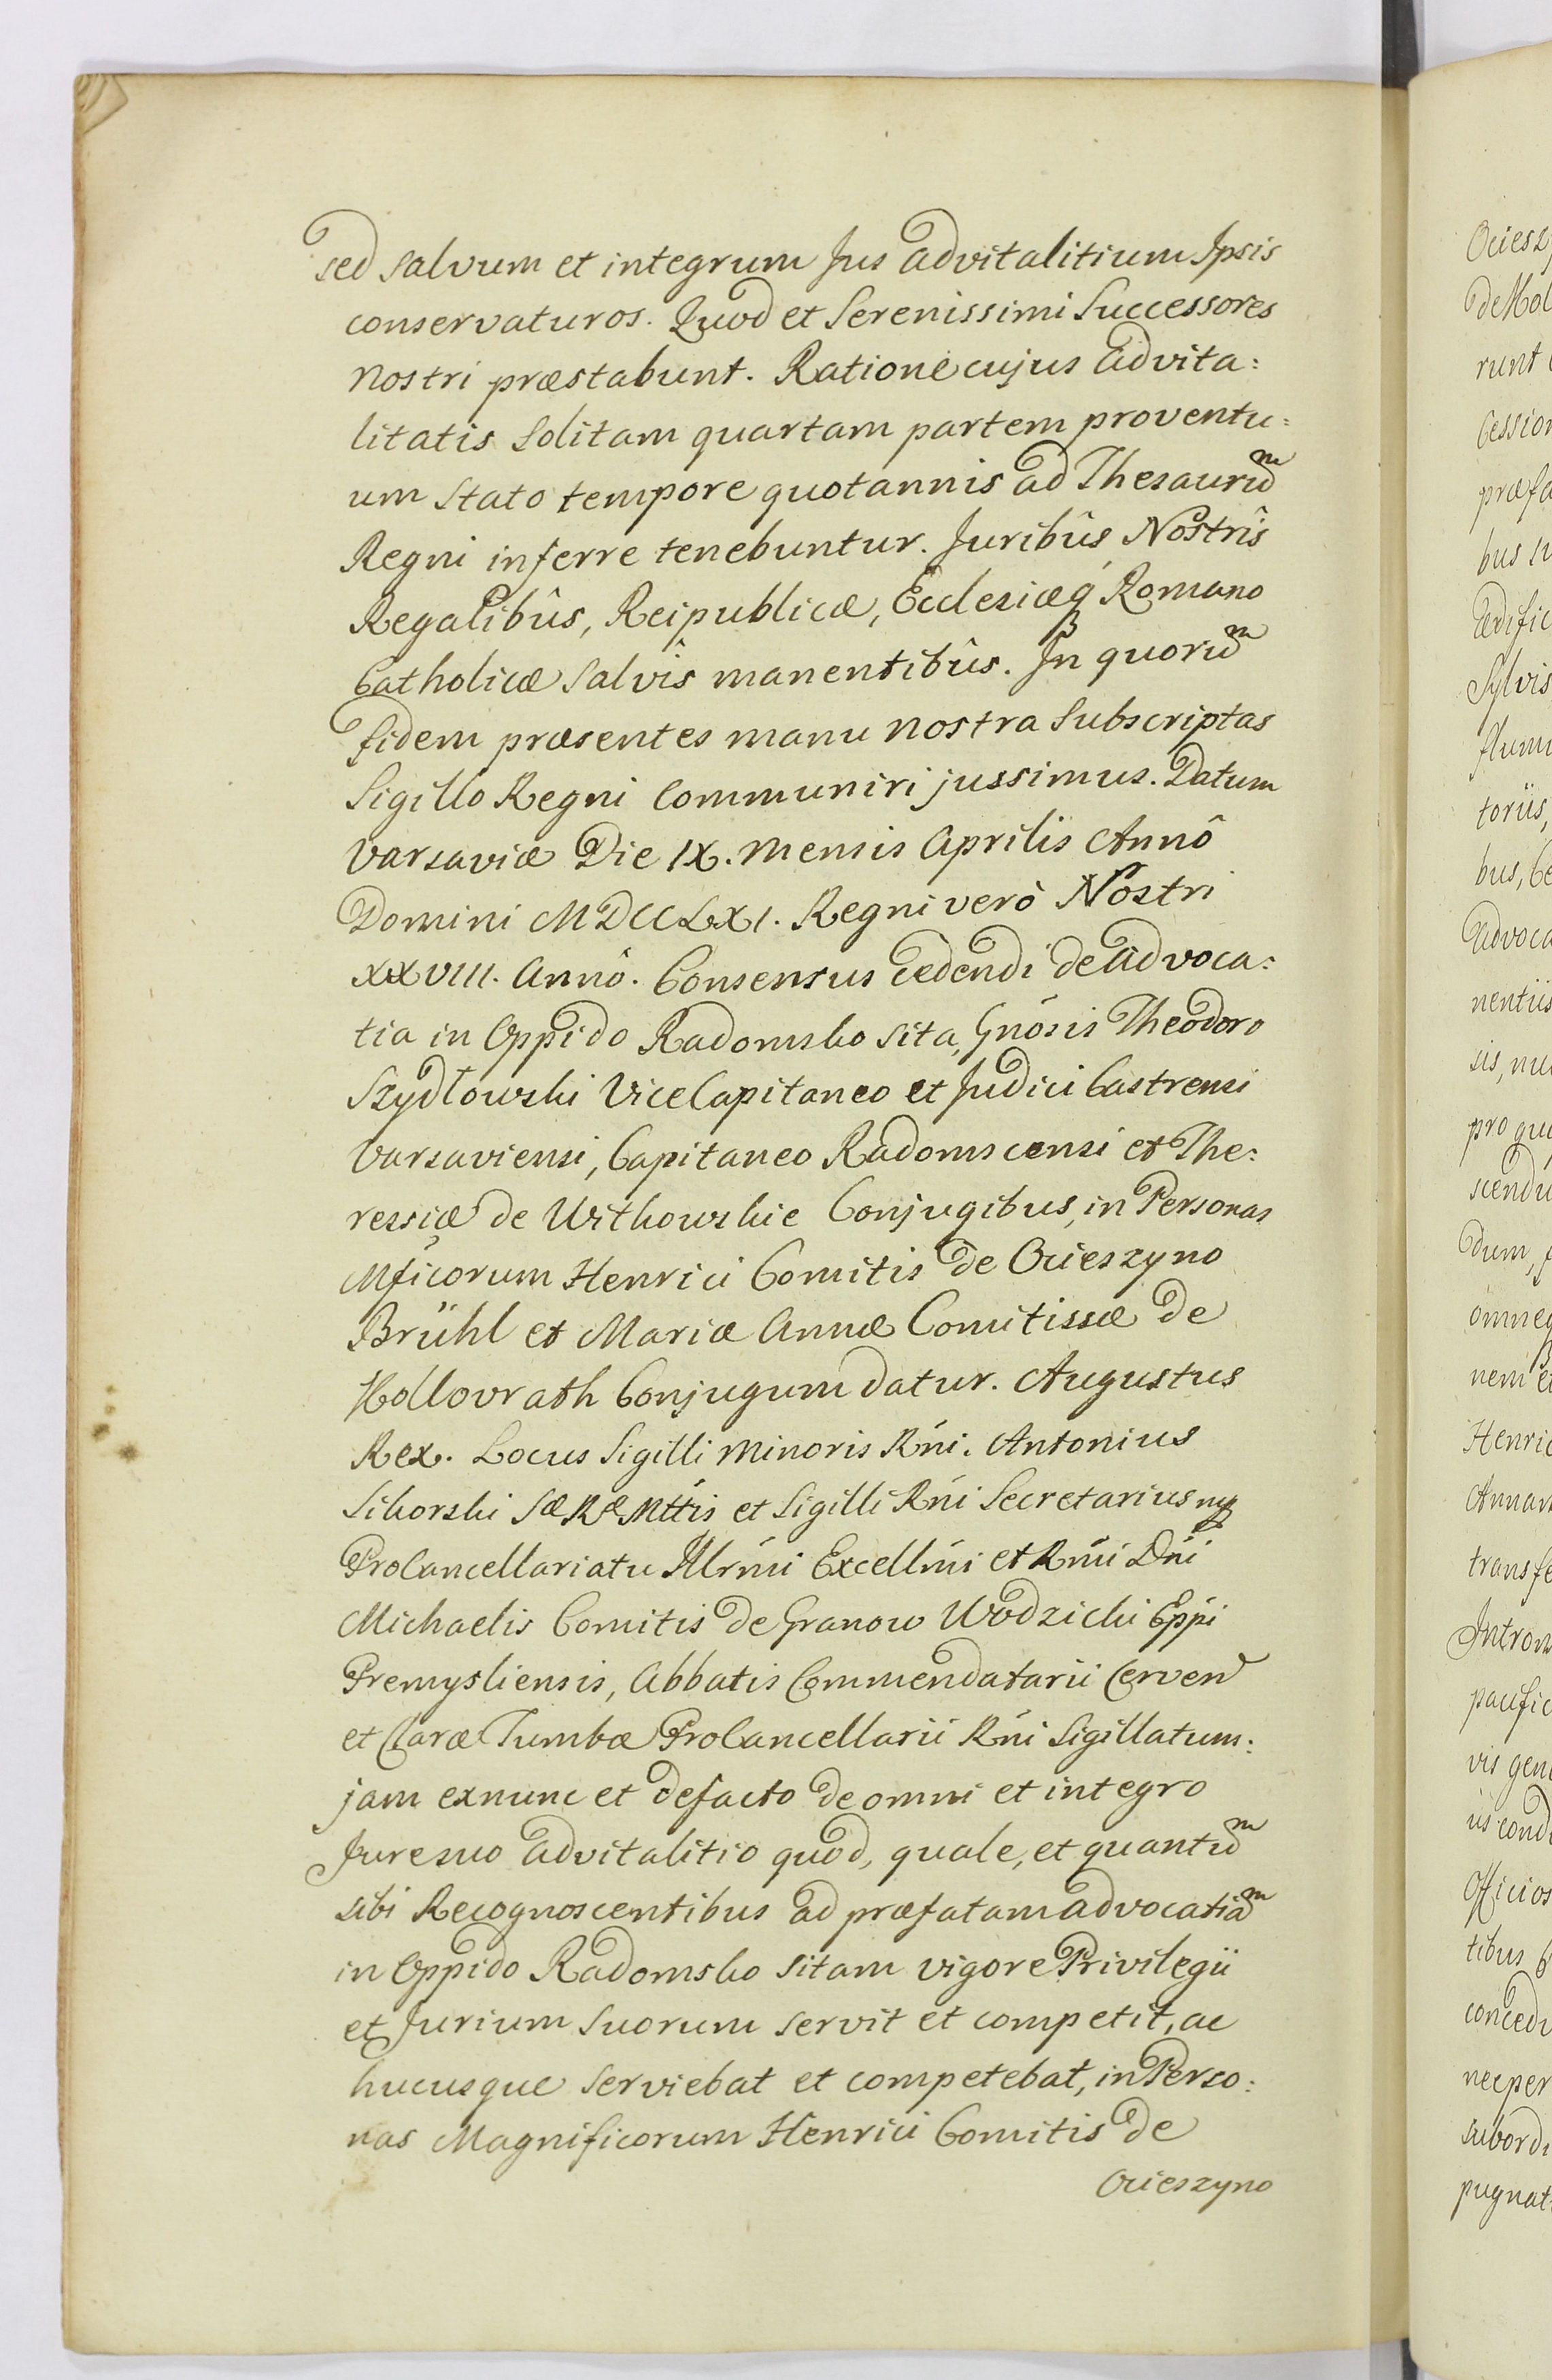 sed salvum et integrum Jus advitalitium Ipsis
conservaturos. Quod et Serenissimi Successores
Nostri præstabunt. Ratione cujus advita:
litatis solitam quartam partem proventu:
um stato tempore quotannis ad Thesauru᷉
Regni inferre tenebuntur. Juribûs Nostrîs
Regalibûs, Reipublicæ, Ecclesiæq́ Romano
Catholicæ salvîs manentibûs. In quoru᷉
fidem præsentes manu nostra subscriptas
Sigillo Regni Communiri jussimus. Datum
Varsaviæ Die IX. Mensis Aprilis Annô
Domini MDCCLXI. Regni verò Nostri
XXVIII. Annô. Consensus cedendi de advoca:
tia in Oppido Radomsko sita, Gnósis Theodoro
Szydłowski ViceCapitaneo et Judici Castrensi
Varsaviensi, Capitaneo Radomscensi et The:
ressiæ de Witkowskie Conjugibus, in Personas
Mficorum Henrici Comitis de Ocieszyno
Brühl et Mariæ Annæ Comitissæ de
Kollovrath Conjugum datur. Augustus
Rex. Locus Sigilli Minoris Rńi. Antonius
Sikorski Sæ Ræ Mttis et Sigilli Rńi Secretarius mp
ProCancellariatu Illrḿi Excellḿi et Rḿi Dńi
Michaelis Comitis de Granow Wodzicki Eppi
Premysliensis, Abbatis Commendatarii Cerven
et Claræ Tumbæ ProCancellarii Rńi Sigillatum:
jam exnunc et defacto de omni et integro
Jure suo advitalitio quod, quale, et quantu᷉
sibi Recognoscentibus ad præfatam advocatia᷉
in Oppido Radomsko sitam vigore Privilegii
et Jurium suorum servit et competit, ac
hucusque serviebat et competebat, in Perso:
nas Magnificorum Henrici Comitis de
Ocieszyno
Ociesz
de Kol
runt
Cession
præfa
bus su
Ædific
Sylvis
flumi
toriis,
bus, Ce
Advoca
nentiis
sis, nul
pro qu
scendu
dum,
omneq
nem e
Henric
Annam
transfe
Introm
pacific
vis gen
iis cond
Officios
tibus
concedu
nec per
subordi
pugnat